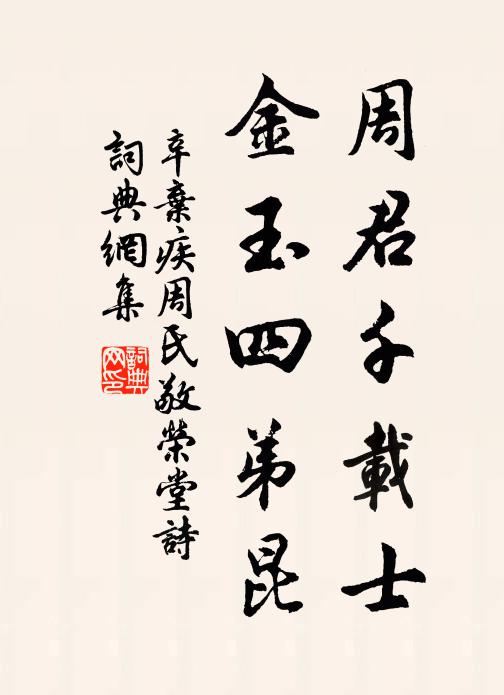 周君千載士
金玉四弟昆
辛棄疾周氏敬榮堂詩
詞典網集
詞典网印